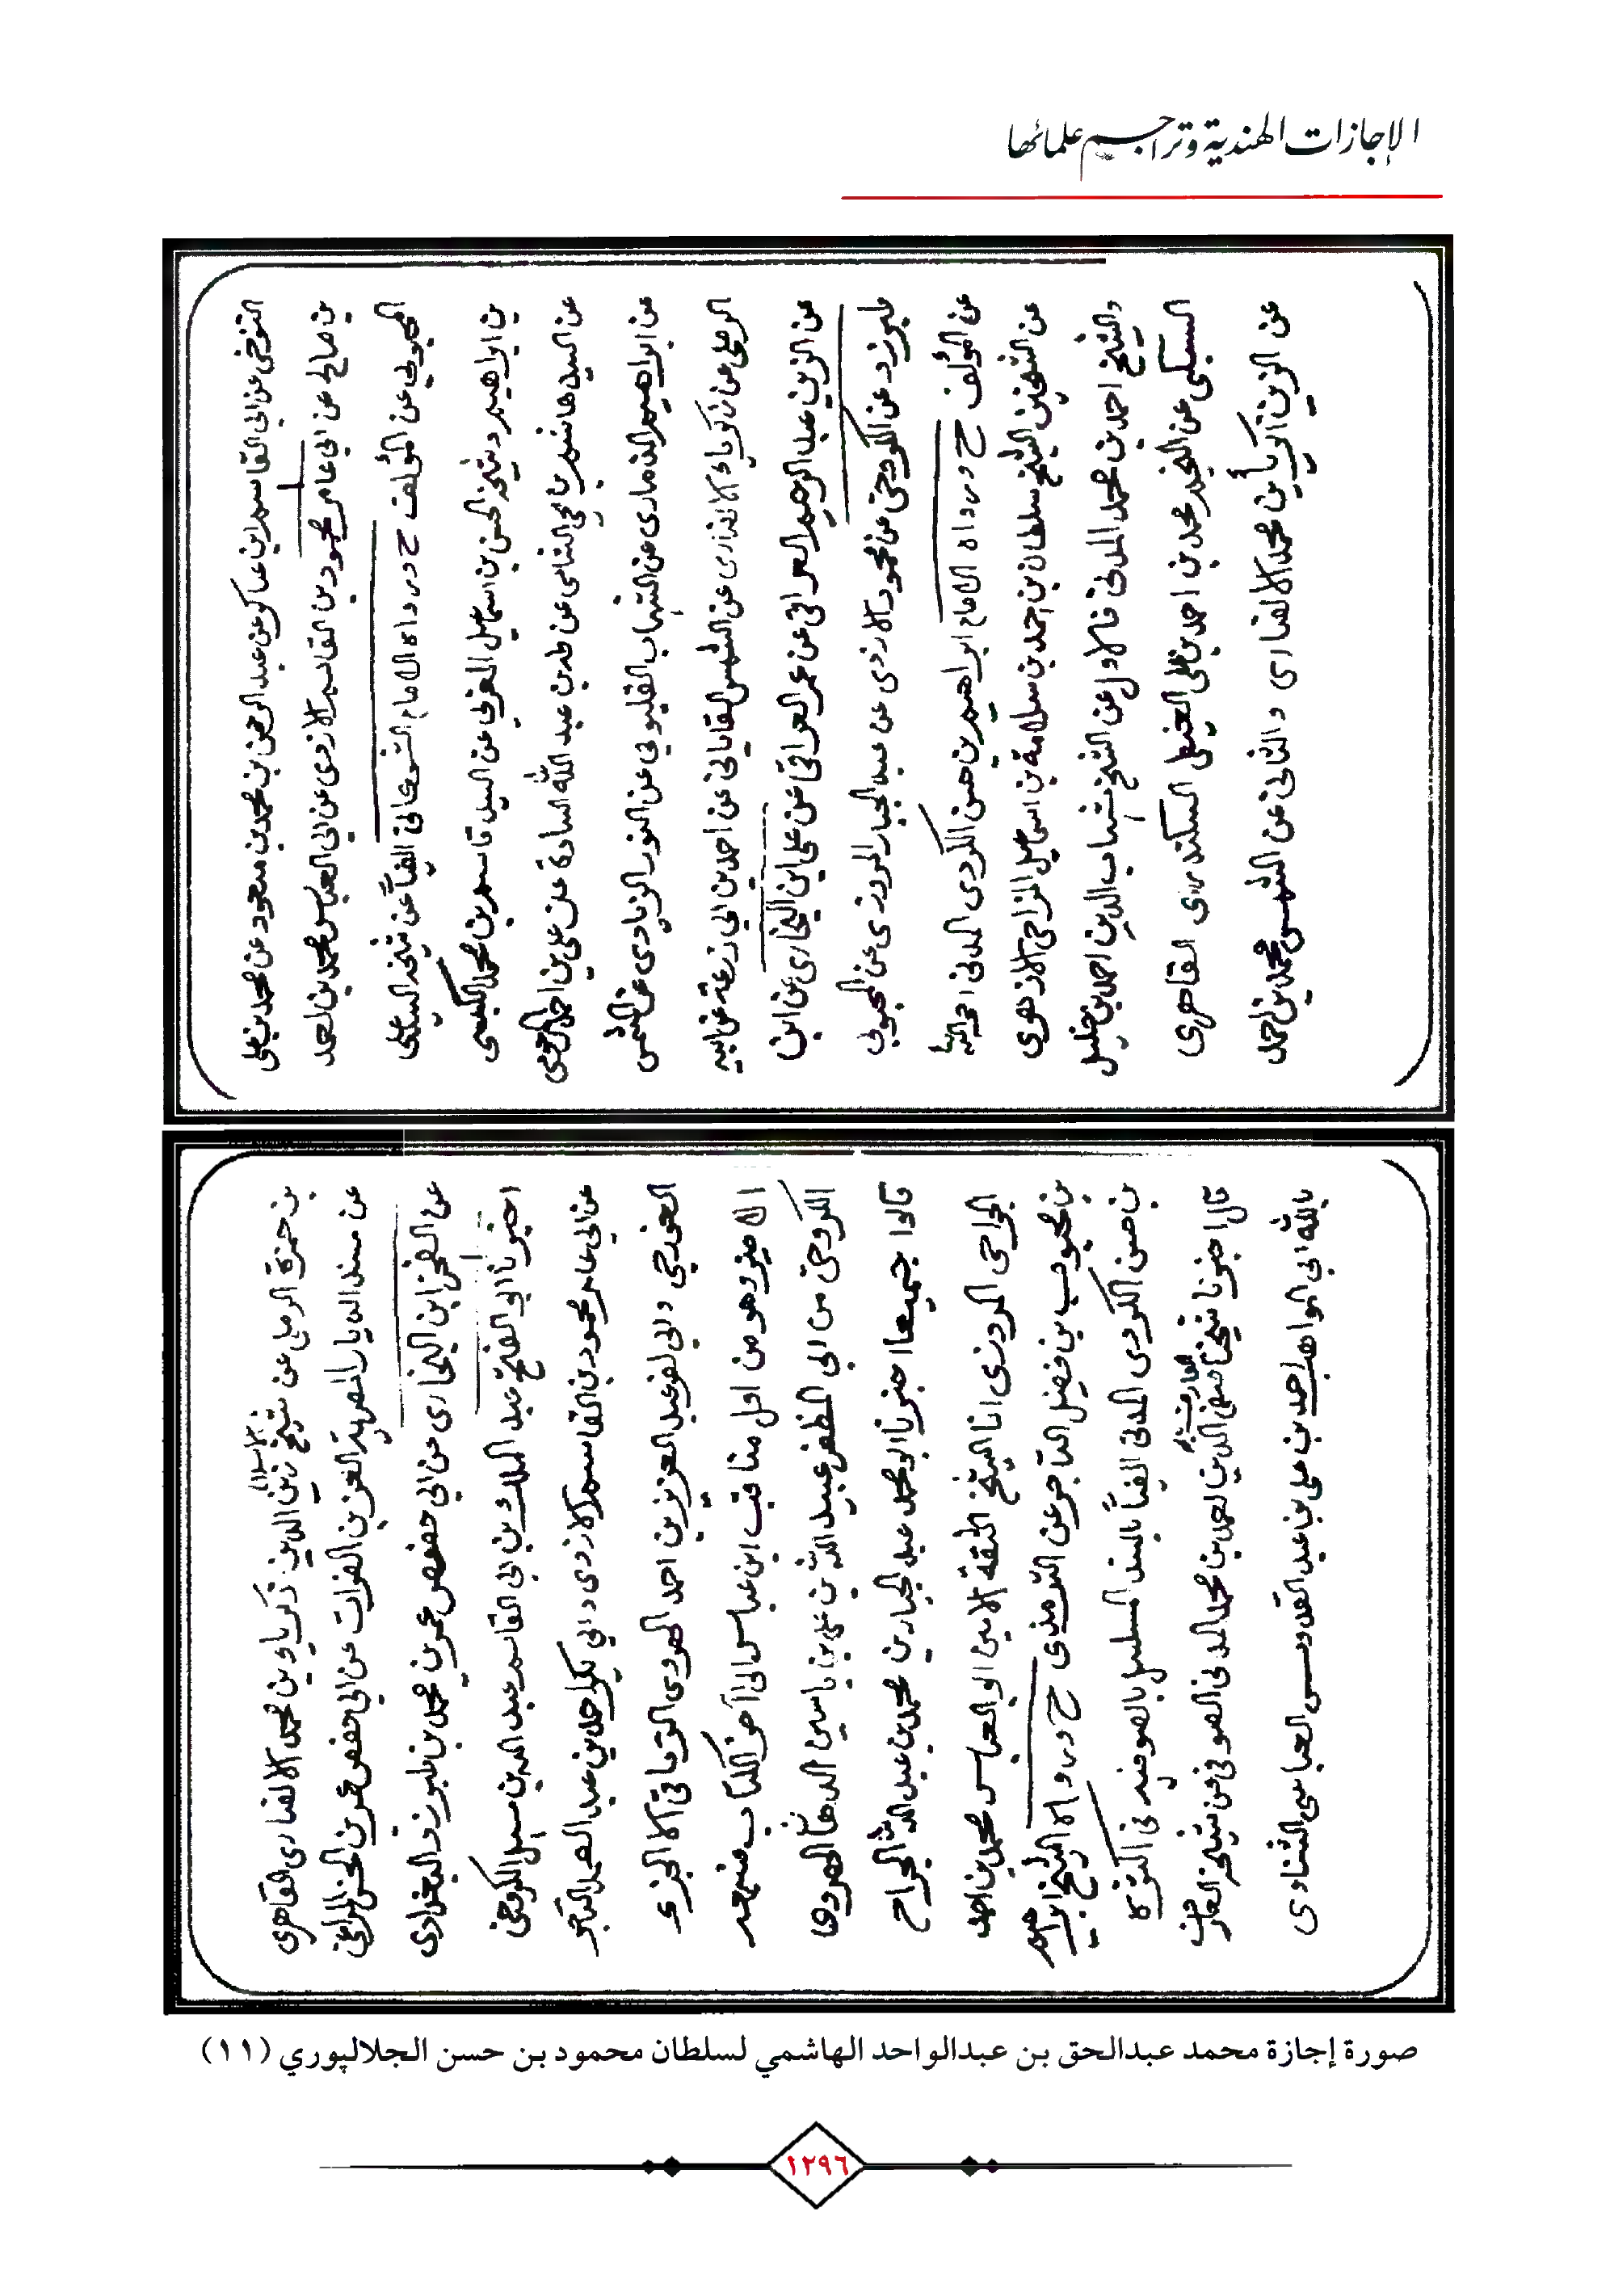 الإجازات الهندية وتراجم علمائها
التنوخي عن ابى القاسم ابن عساكر عن عبد الرحمن بن محمد بن مسعود عن محمد بن علي
بن صالح عن ابي عامر محمود بن القاسم الازدى عن ابى العباس محمد بن احمد
المحبوبي عن المؤلف ح وروداه الامام الشوكاني ايضاً عن شيخه السيد علي
بن ابراهيم وشيخه الحسن بن اسماعيل المغربي عن السيد قاسم بن محمد الكبسي
عن السيد هاشم بن يحيى الشامي عن طه بن عبد الله السادة عن علي بن احمد المرحومي
عن ابراهيم الذمارى عن الشهاب القليوبي عن النور الزيادى عن الشمس
الرملي عن زكرياء الانصارى عن الشمس القاياتي عن احمد بن ابي زرعة عن ابيه
عن الزين عبد الرحيم العراقي عن عمر العراقي عن علي ابن البخارى عن ابن
طبرزد عن الكروخي عن محمود الازدى عن عبد الجبار المروزى عن المحبوبي
عن المؤلف ح ورواه الامام ابراهيم بن حسن الكردى المدني رحمه الله
عن الشيخين الشيخ سلطان بن احمد بن سلامة بن اسماعيل المزاحى الازهرى
والشيخ احمد بن محمد المدني فالاول عن الشيخ شهاب الدين احمد بن خليل
السبكي عن النجم محمد بن احمد بن علي الغيطي السكندرى القاهرى
عن الزين زكريا بن محمد الانصارى والثاني عن الشمس محمد بن احمد
بن حمزة الرملي عن شيخ الاسلام زين الدين زكرياء بن محمد الانصارى القاهرى
عن مسند الديار المصرية العز بن الفرات عن ابي حفص عمر بن الحسن المراغي
عن الفخر ابن البخارى عن ابي حفص عمر بن محمد بن طبرزد البغدادى
اخبرنا ابي الفتح عبد الملك بن ابي القاسم عبد الله بن سهل الكروخي
عن ابي عامر محمود بن القاسم الازدى وابي بكر احمد بن عبد الصمد التاجر
الغورجي وابي نصر عبد العزيز بن احمد الهروى الترياقي الا الجزء
الاخير وهو من اول مناقب ابن عباس الى آخر الكتاب فسمعه
الكروخي من ابى المظفر عبيد الله بن علي بن ياسين الدهان الهروى
قالوا جميعا اخبرنا ابو محمد عبد الجبار بن محمد بن عبد الله الجراح
الجراحى المروزى انا الشيخ الثقة الامين ابو العباس محمد بن احمد
بن محبوب بن فضيل التاجر عن الترمذى ح ورواه الشيخ ابراهيم
بن حسن الكردى المدني ايضاً بالسند المسلسل بالصوفية في اكثره
قال اخبرنا شيخنا العارف بالله صفى الدين احمد بن محمد المدني الصوفي عن شيخه العارف
بالله ابي المواهب احمد بن علي بن عبد القدوس العباسى الشناوى
صورة إجازة محمد عبدالحق بن عبدالواحد الهاشمي لسلطان محمود بن حسن الجلالپوري (١١)
١٢٩٦